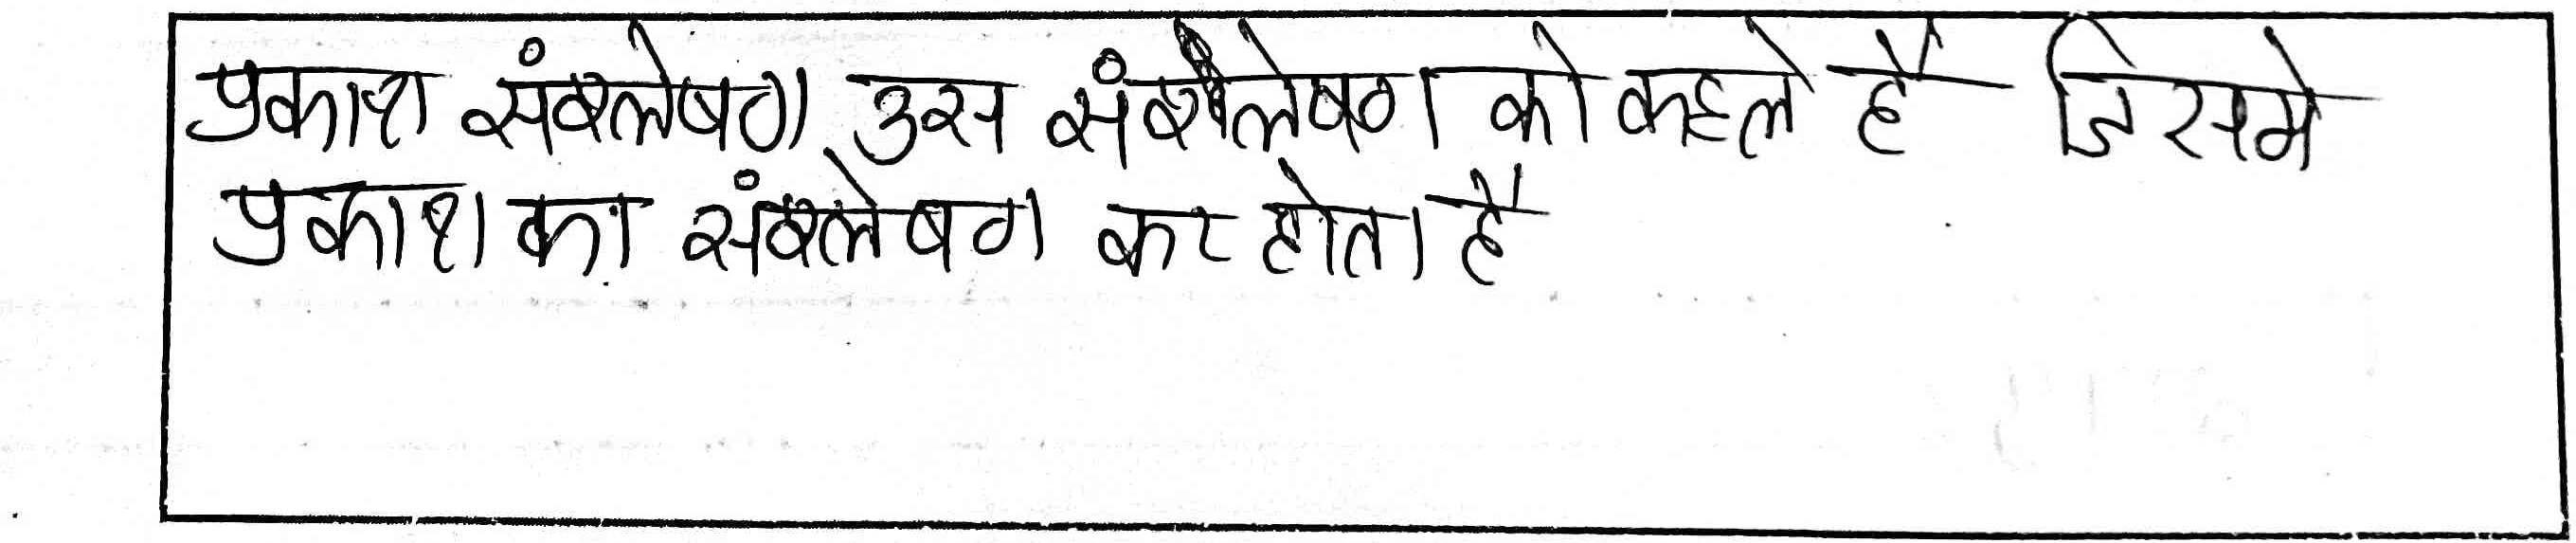 प्रकाश संश्लेषण उस संश्लेषण को कहते है जिसमे
प्रकाश का संश्लेषण कर होता है